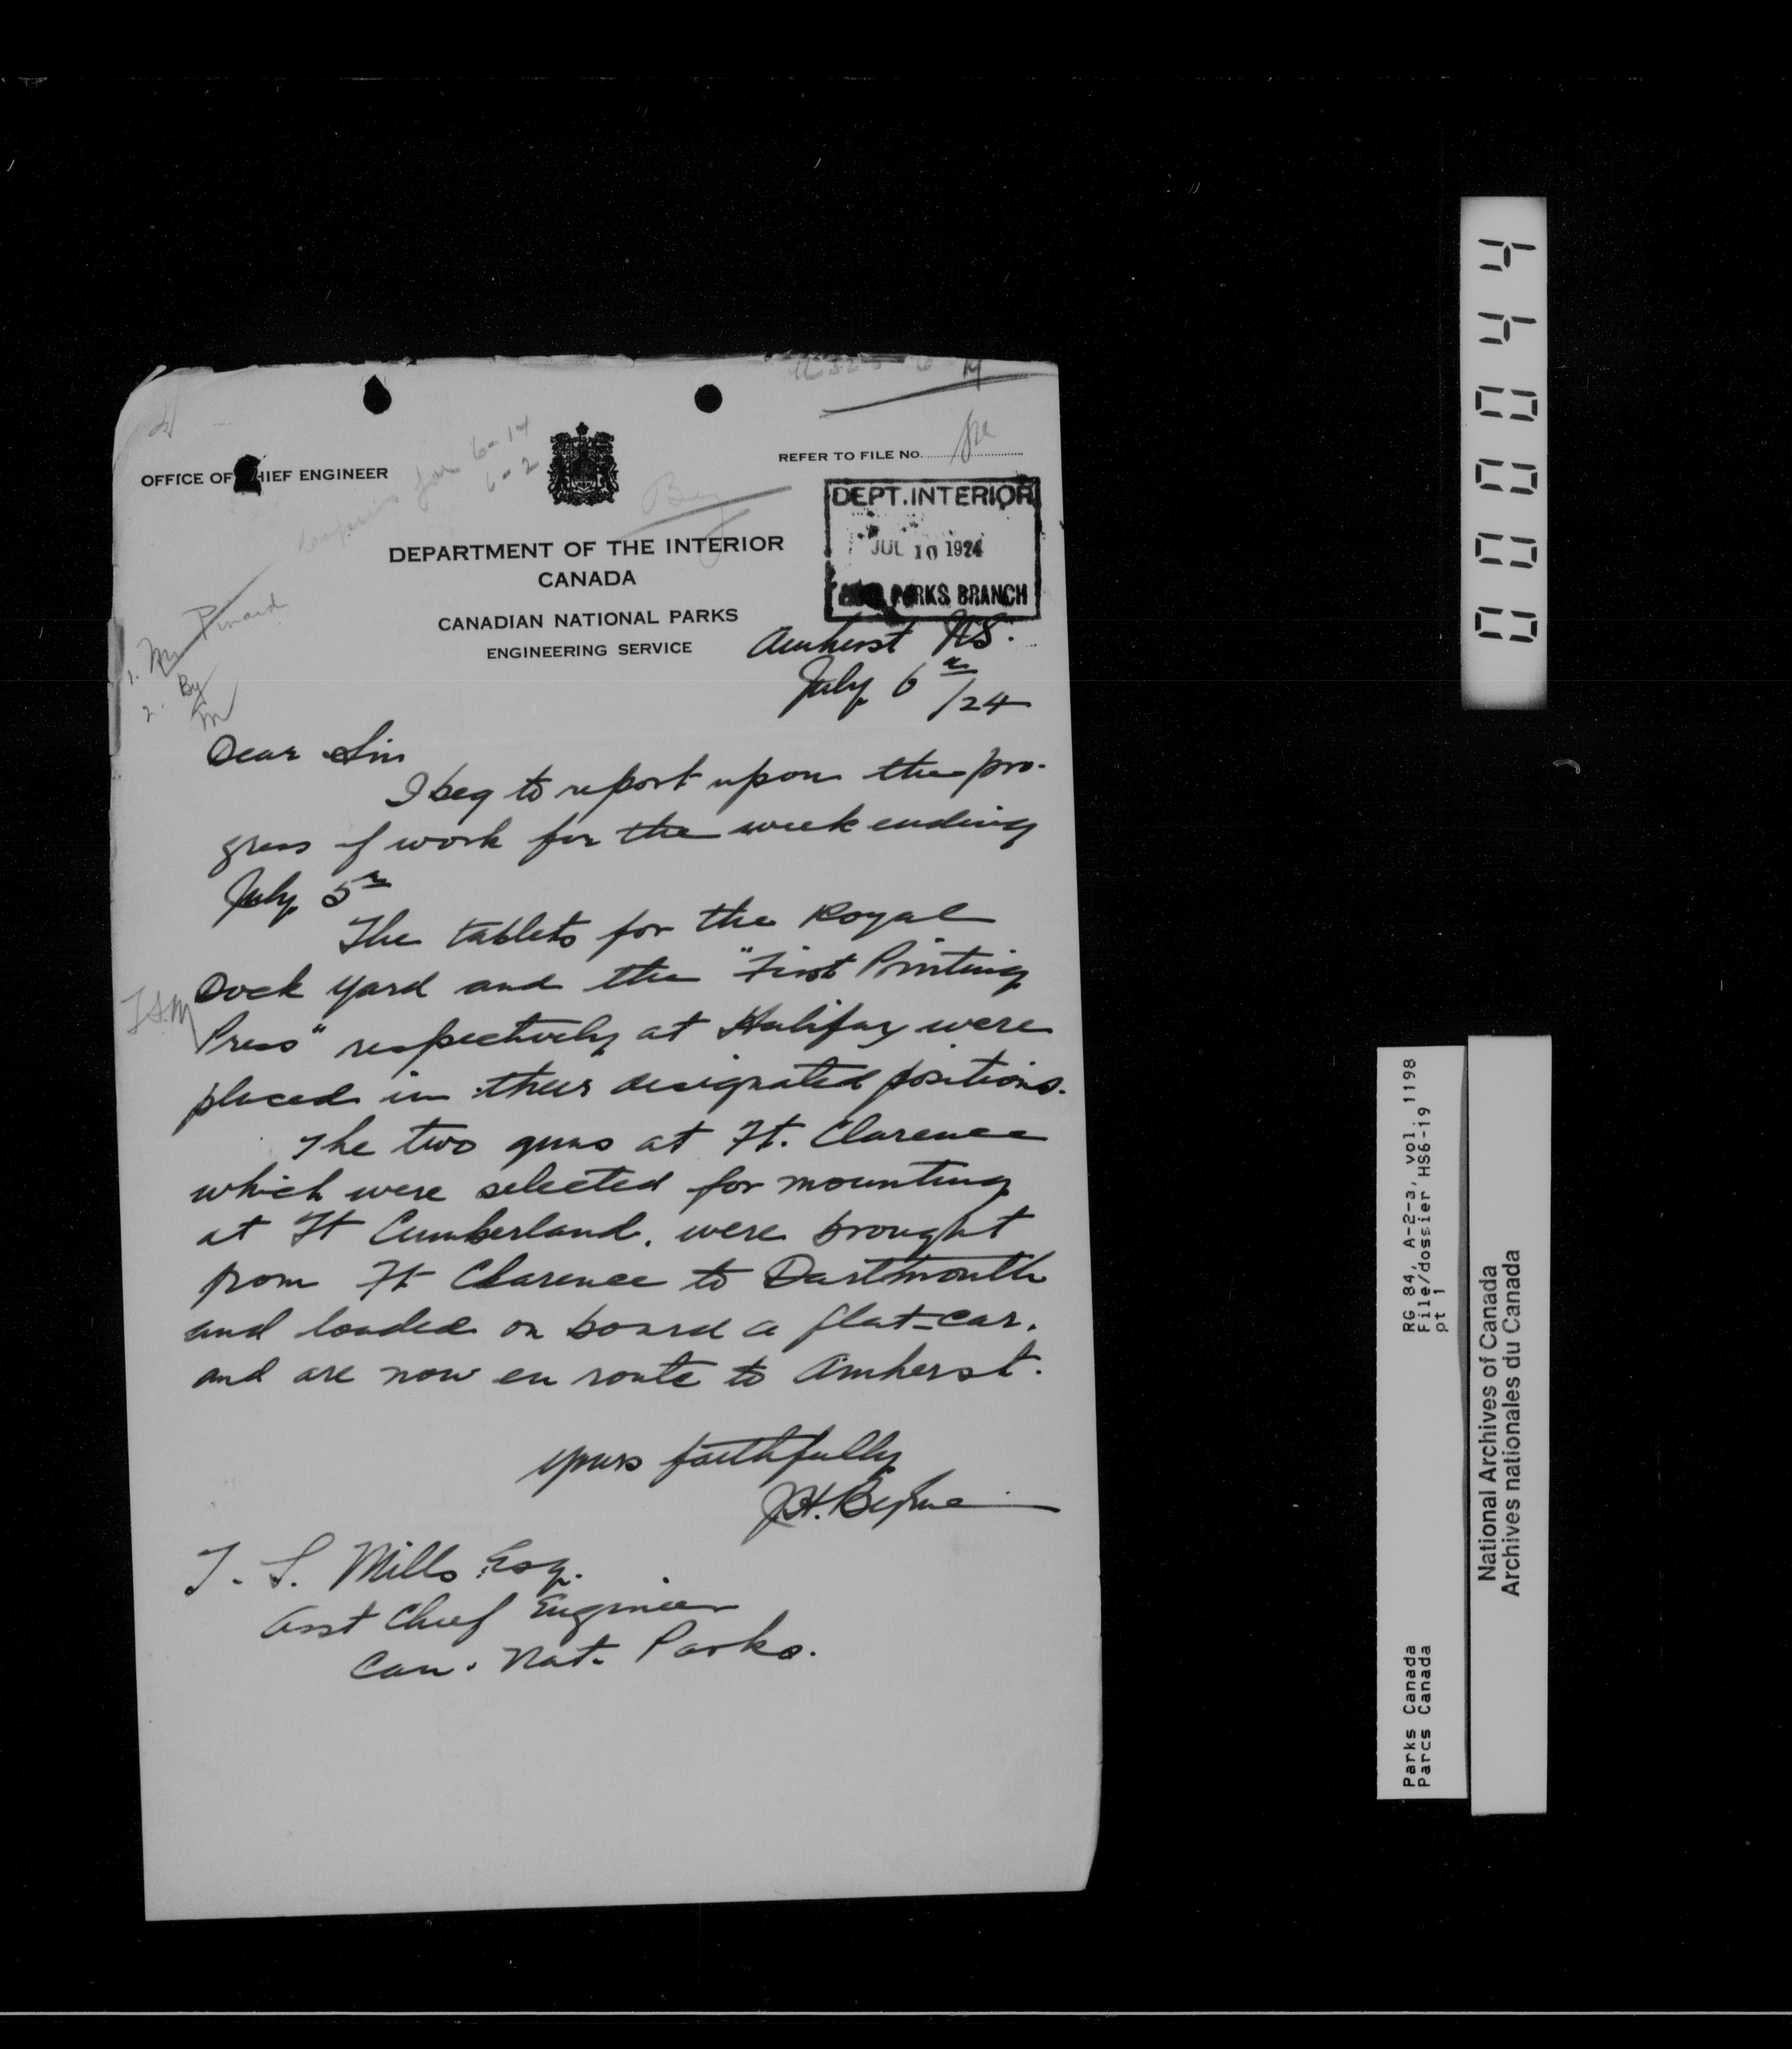 OFFICE OF CHIEF ENGINEER
6-14
6-2
REFER TO FILE NO.
DEPT. INTERIOR
JUL 10 1924
PARKS BRANCH
DEPARTMENT OF THE INTERIOR
CANADA
CANADIAN NATIONAL PARKS
ENGINEERING SERVICE
1. Mr Pinard
2. By
Amherst N.S.
July 6th/24
Dear Sir
I beg to report upon the pro-
gress of work for the week ending
July 5th
The tablets for the Royal
Dock Yard and the "First Printing
T.S.M
Press" respectively at Halifax were
placed in their designated positions.
The two guns at Ft. Clarence
which were selected for mounting
at Ft Cumberland, were brought
from Ft Clarence to Dartmouth
and loaded on board a flat-car.
and are now en route to Amherst.
Yours faithfully
J.H. Byrne
T. S. Mills Esq.
Asst Chief Engineer
Can. Nat. Parks.
00004 4
RG 84, A-2-3, vol. 1198
File/dossier HS6-19
pt 1
Parks Canada
Parcs Canada
National Archives of Canada
Archives nationales du Canada